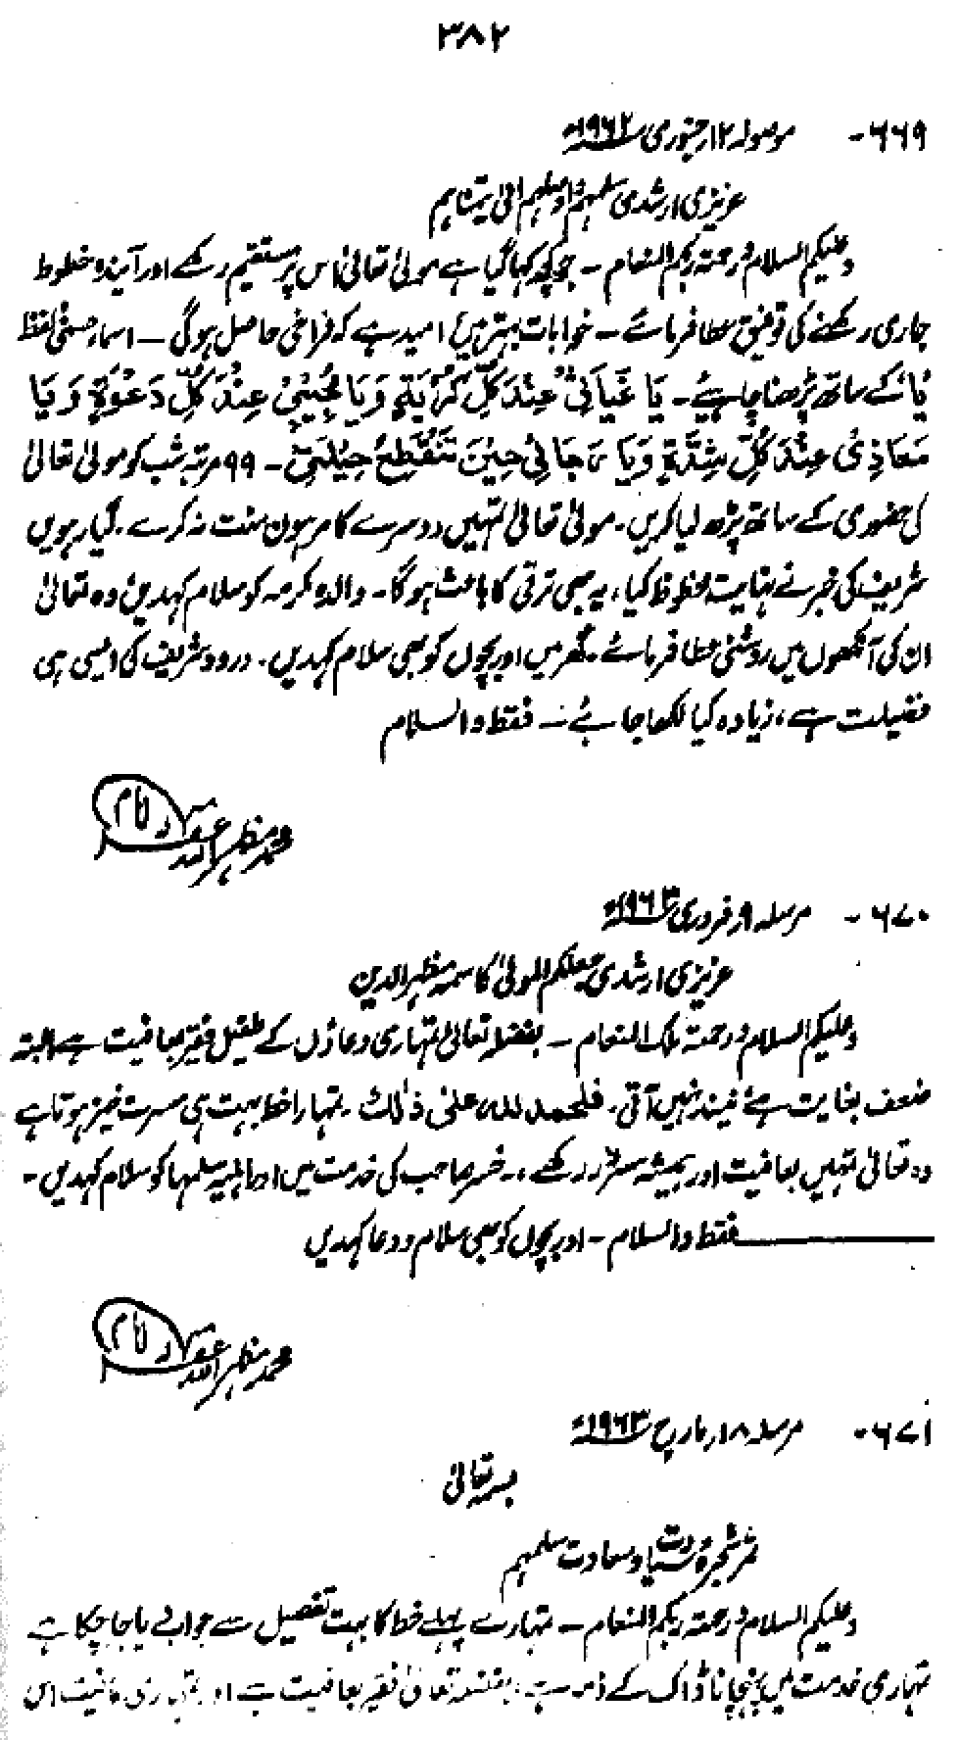 ۳۸۲
۶۶۹- موصولہ ۱۲ر جنوری ۱۹۶۲ء
عزیزی ارشدی سلمہم
وعلیکم السلام ورحمۃ ربکم المنعام ۔ جو کچھ کہا گیا ہے مولیٰ تعالیٰ اس پر مستقیم رکھے اور آیندہ خطوط
جاری رکھنے کی توفیق عطا فرمائے ۔ خوابات بہتر ہیں امید ہے کہ فراخی حاصل ہوگی ۔ اسماء حسنیٰ لفظ
یَا کے ساتھ پڑھنا چاہیئے ۔ یَا غَیَاثِیْ عِنْدَ کُلِّ کُرْبَۃٍ وَیَا مُجِیْبِیْ عِنْدَ کُلِّ دَعْوَۃٍ وَیَا
مَعَاذِیْ عِنْدَ کُلِّ شِدَّۃٍ وَیَا رَجَائِیْ حِیْنَ تَنْقَطِعُ حِیْلَتِیْ ۔ ۹۹ مرتبہ شب کو مولیٰ تعالیٰ
کی حضوری کے ساتھ پڑھ لیا کریں ۔ مولیٰ تعالیٰ تمہیں دوسرے کا مرہون منت نہ کرے ۔ گیارہویں
شریف کی خبر نے نہایت محظوظ کیا ، یہ بھی ترقی کا باعث ہوگا ۔ والدہ مکرمہ کو سلام کہدیں وہ تعالیٰ
ان کی آنکھوں میں روشنی عطا فرمائے ۔ گھر میں اور بچوں کو بھی سلام کہدیں ۔ درود شریف کی ایسی ہی
فضیلت ہے ، زیادہ کیا لکھا جائے ۔ فقط والسلام
محمد مظہر اللہ غفرلہ امام
۶۷۰- مرسلہ ۹ر فروری ۱۹۶۳ء
عزیزی ارشدی جعلکم المولیٰ کاسمہ مظہر الدین
وعلیکم السلام ورحمۃ ملک المنعام ۔ بفضلہ تعالیٰ تمہاری دعاؤں کے طفیل فقیر بعافیت ہے البتہ
ضعف بغایت ہے نیند نہیں آتی ۔ فلحمد للہ علیٰ ذٰلک ۔ تمہارا خط بہت ہی مسرت خیز ہوتا ہے
وہ تعالیٰ تمہیں بعافیت اور ہمیشہ مسرور رکھے ۔ خسر صاحب کی خدمت میں اور اہلیہ سلمہا کو سلام کہدیں ۔
فقط والسلام ۔ اور بچوں کو بھی سلام و دعا کہدیں
محمد مظہر اللہ غفرلہ امام
۶۷۱- مرسلہ ۱۸ر مارچ ۱۹۶۳ء
بسمہ تعالیٰ
ثمر شجرۂ سیادت و سعادت سلمہم
وعلیکم السلام ورحمۃ ربکم المنعام ۔ تمہارے پہلے خط کا بہت تفصیل سے جواب دیا جا چکا ہے
تمہاری خدمت میں پہنچانا ڈاک کے ذمہ ہے ، بفضلہ تعالیٰ فقیر بعافیت ہے اور تمہاری عافیت اس